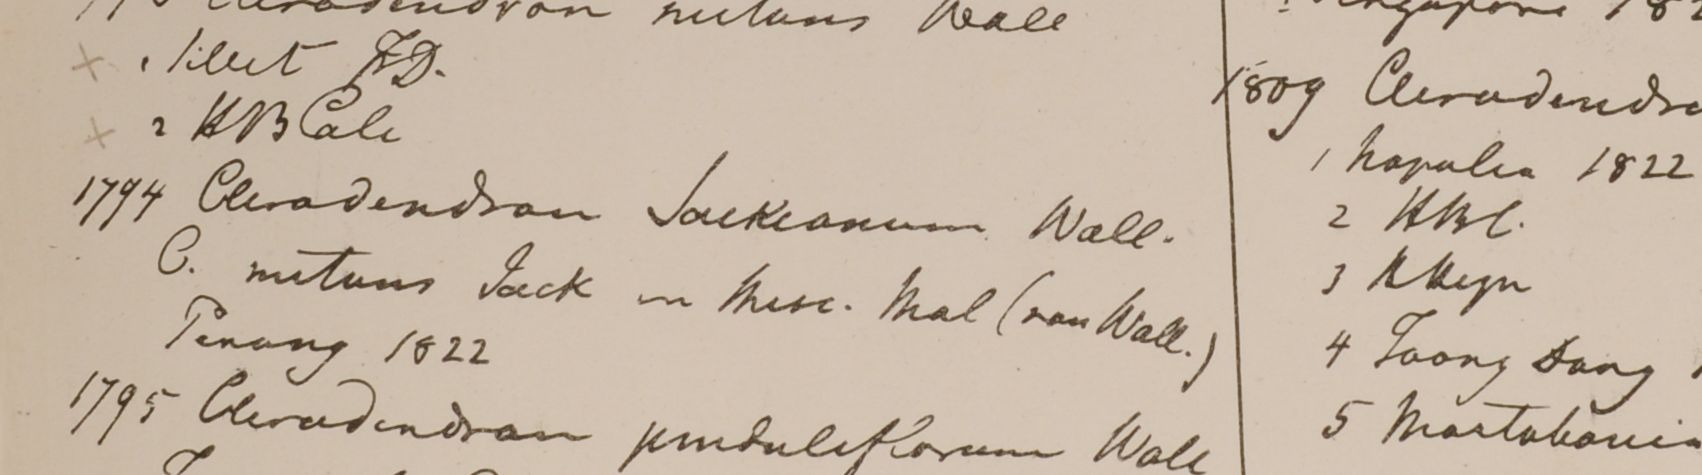 Clerodendron nutans Wall
1 Sillet F.D.
2 H B Calc
1794 Clerodendron Jackianum Wall.
C. nutans Jack in Misc. Mal (non Wall.)
Penang 1822
1795 Clerodendron penduliflorum Wall
Singapore 182
1809 Clerodendro
1 Napalia 1822
2 HBC.
3 H Heyn
4 Toong Dong
5 Martabania